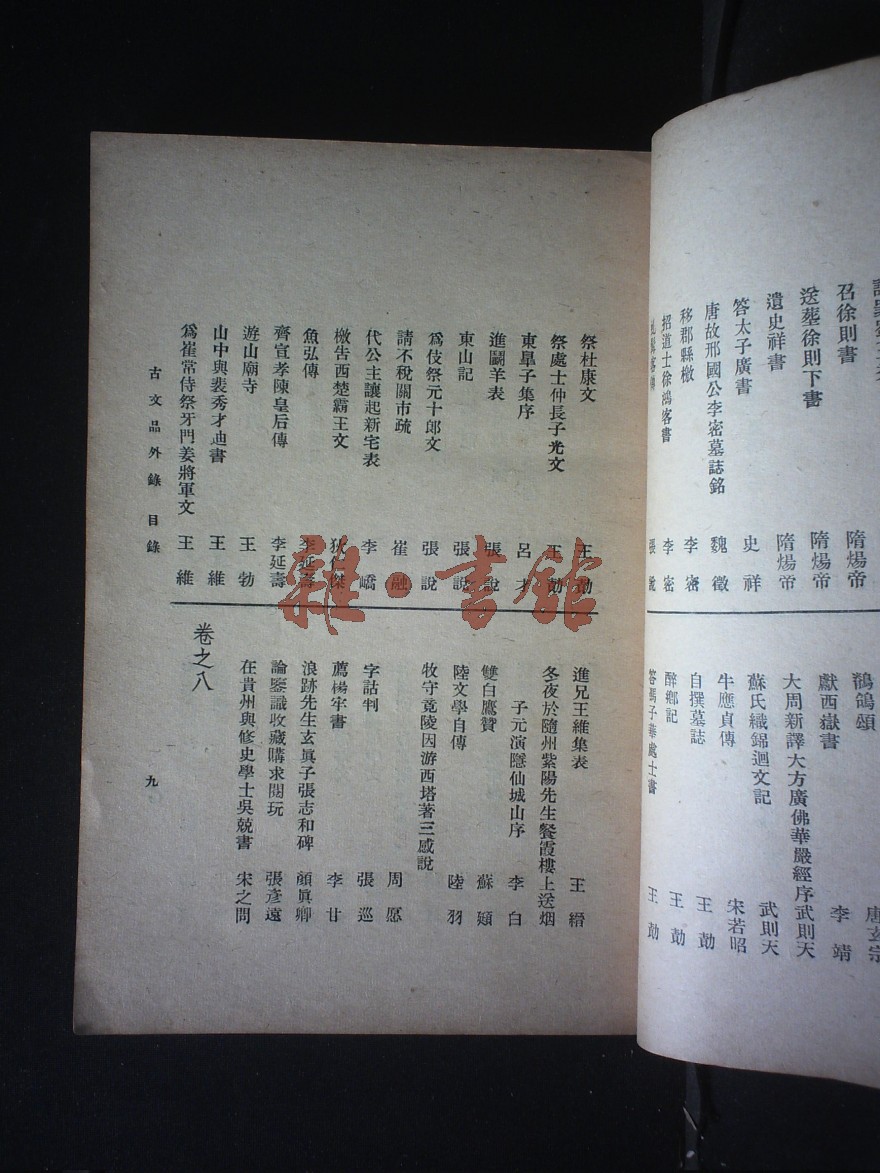 召徐則書 隋煬帝
送葬徐則下書 隋煬帝
遺史祥書 隋煬帝
答太子廣書 史祥
唐故邢國公李密墓誌銘 魏徵
移郡縣檄 李密
招道士徐鴻客書 李密
鶺鴒頌 唐玄宗
獻西嶽書 李靖
大周新譯大方廣佛華嚴經序 武則天
蘇氏織錦迴文記 武則天
牛應貞傳 宋若昭
自撰墓誌 王勣
醉鄉記 王勣
答馮子華處士書 王勣
祭杜康文 王勣
祭處士仲長子光文 王勣
東臯子集序 呂才
進鬬羊表 張說
東山記 張說
爲伎祭元十郎文 張說
請不稅關市疏 崔融
代公主讓起新宅表 李嶠
檄告西楚霸王文 狄仁傑
魚弘傳 李延壽
齊宣孝陳皇后傳 李延壽
遊山廟寺 王勃
山中與裴秀才迪書 王維
爲崔常侍祭牙門姜將軍文 王維
進兄王維集表 王縉
冬夜於隨州紫陽先生餐霞樓上送烟
子元演隱仙城山序 李白
雙白鷹贊 蘇頲
陸文學自傳 陸羽
牧守竟陵因游西塔著三感說
周愿
字詁判 張巡
薦楊宇書 李甘
浪跡先生玄眞子張志和碑 顏眞卿
論鑒識收藏購求閱玩 張彥遠
在貴州與修史學士吳兢書 宋之問
卷之八
古文品外錄 目錄
九
雜·書館